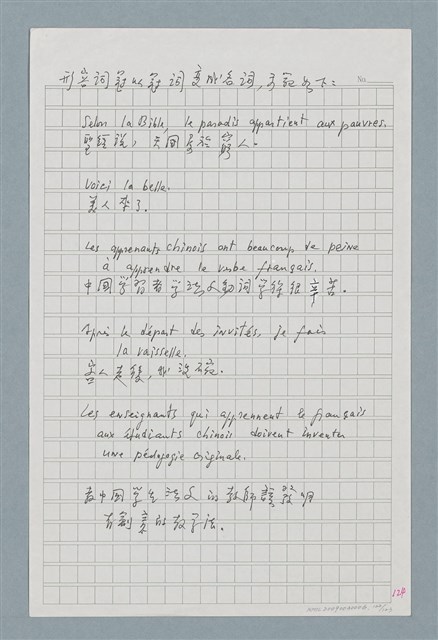 形容詞冠以冠詞變成名詞，示範如下：
No.
Selon la Bible, le paradis appartient aux pauvres.
聖經說，天國屬於窮人。
Voici la belle.
美人來了。
Les apprenants chinois ont beaucoup de peine
à apprendre le verbe français.
中國学習者学法文動詞学得很辛苦。
Après le départ des invités, je fais
la vaisselle.
客人走後，我洗碗。
Les enseignants qui apprennent le français
aux étudiants chinois doivent inventer
une pédagogie originale.
教中國学生法文的教師該發明
有創意的教学法。
124